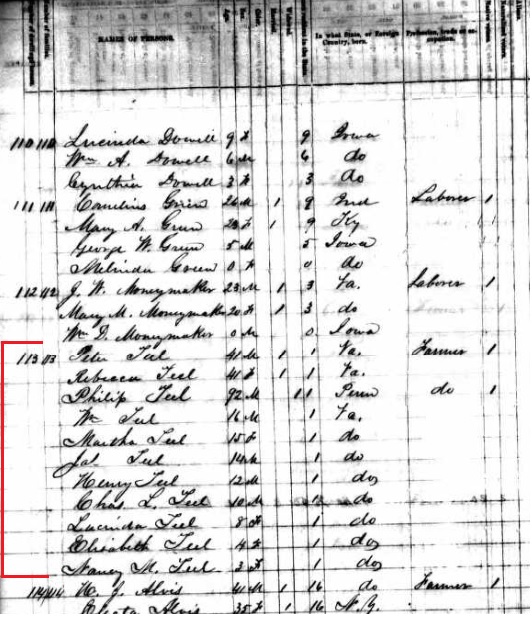 NAMES OF PERSONS.
In what State, or Foreign Country, born.
110 110 Lucinda Dowell 9 F 9 Iowa
Wm A. Dowell 6 M 6 do
Cynthia Dowell 3 F 3 do
111 111 Cornelius Green 26 M 1 9 Ind Laborer 1
Mary A. Green 23 F 1 9 Ky
George W. Green 5 M 5 Iowa
Melinda Green 0 F 0 do
112 112 J. W. Moneymaker 23 M 1 3 Va. Laborer 1
Mary M. Moneymaker 20 F 1 3 do
Wm D. Moneymaker 0 M 0 Iowa
113 113 Peter Teel 41 M 1 1 Va. Farmer 1
Rebecca Teel 41 F 1 1 Va.
Philip Teel 92 M 1 1 Penn do 1
Wm Teel 16 M 1 Va.
Martha Teel 15 F 1 do
Jas Teel 14 M 1 do
Henry Teel 12 M 1 do
Chas. L. Teel 10 M 1 do
Lucinda Teel 8 F 1 do
Elisabeth Teel 4 F 1 do
Nancy M. Teel 3 F 1 do
114 114 W. J. Alvis 41 M 1 16 do Farmer 1
Alvis 35 F 1 16 N.Y.